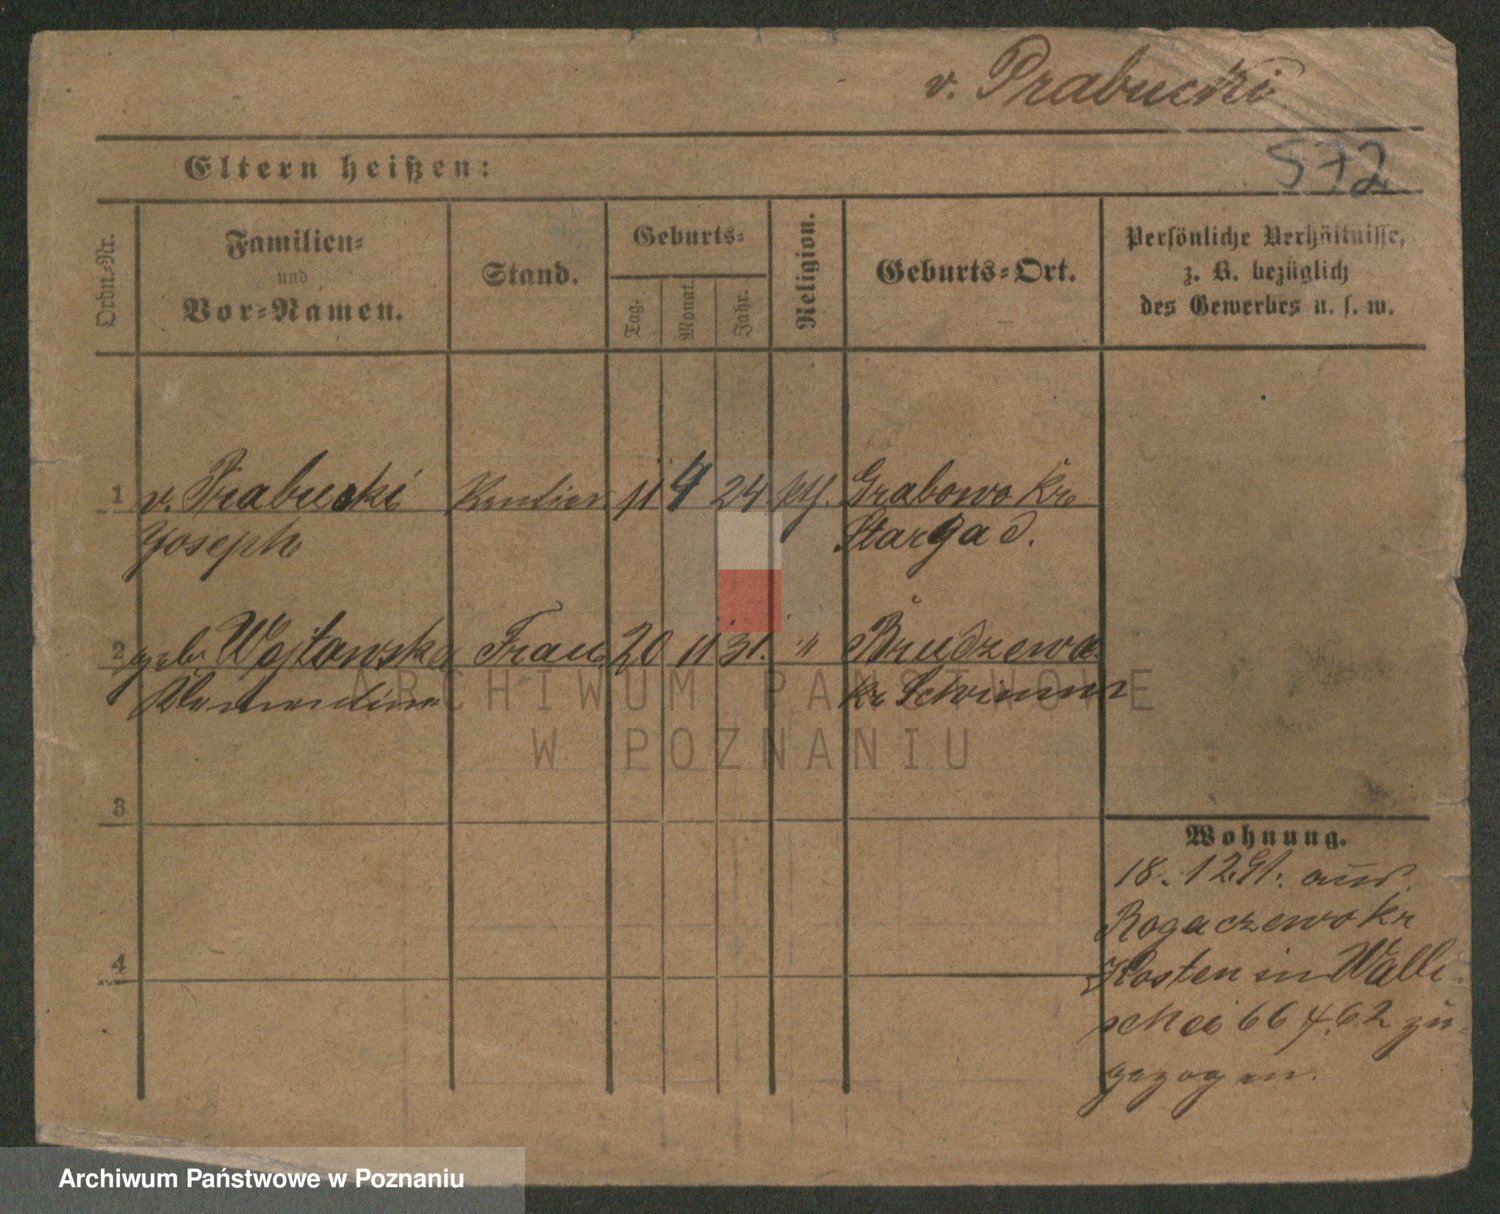 v. Prabucki
Eltern heißen:
572
Ordn.-Nr.
Familien-
und
Vor-Namen.
Stand.
Geburts-
Tag.
Monat.
Jahr.
Religion.
Geburts-Ort.
Persönliche Verhältnisse,
z. B. bezüglich
des Gewerbes u. s. w.
1 v. Prabucki Rentier 11 4 24. Grabowo Kr.
Joseph Stargad.
2 geb. Wojtowska Frau 20 11 31. " Brudzewo
Klementine kr Schrimm
3
4
Wohnung.
18. 12. 91. aus
Rogaczewo kr
Kosten in Walli-
schei 66 4.62 zu-
gezogen.
ARCHIWUM PAŃSTWOWE
W POZNANIU
Archiwum Państwowe w Poznaniu